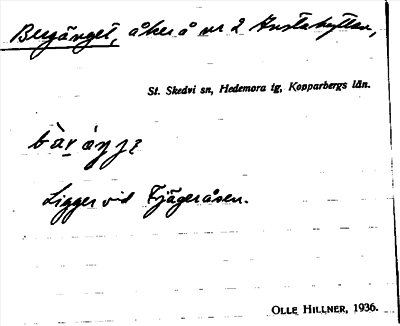 Bergänget, åker å nr 2 Gustahyttan,
St. Skedvi sn, Hedemora tg, Kopparbergs län.
Ligger vid Fjägeråsen.
OLLE HILLNER, 1936.